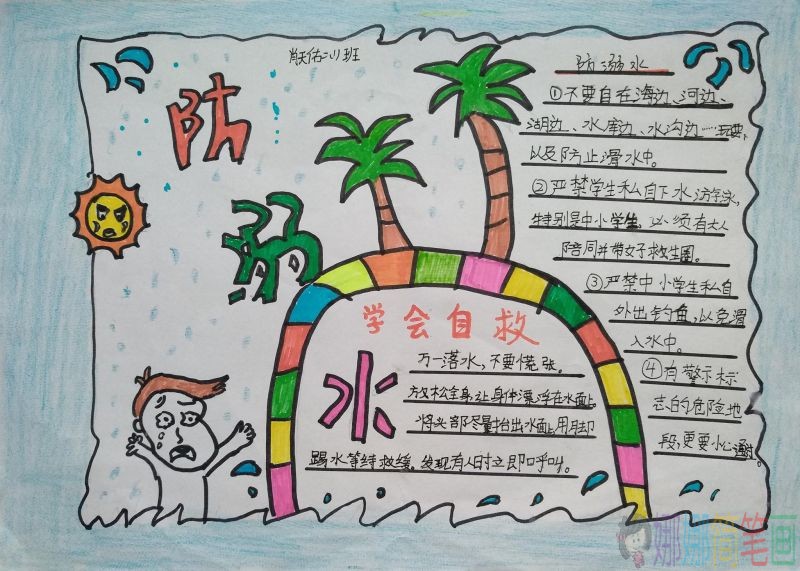 防
溺
水
防溺水
①不要自在海边、河边、
湖边、水库边、水沟边……玩耍,
以及防止滑水中。
②严禁学生私自下水游泳,
特别是中小学生,必须有大人
陪同并带好救生圈。
③严禁中小学生私自
外出钓鱼,以免滑
入水中。
④有警示标
志的危险地
段,更要小心
学会自救
万一落水,不要慌张。
放松全身,让身体漂浮在水面上。
将头部尽量抬出水面上,用脚
踢水等待救缓。发现有人时立即呼叫。
娜娜简笔画